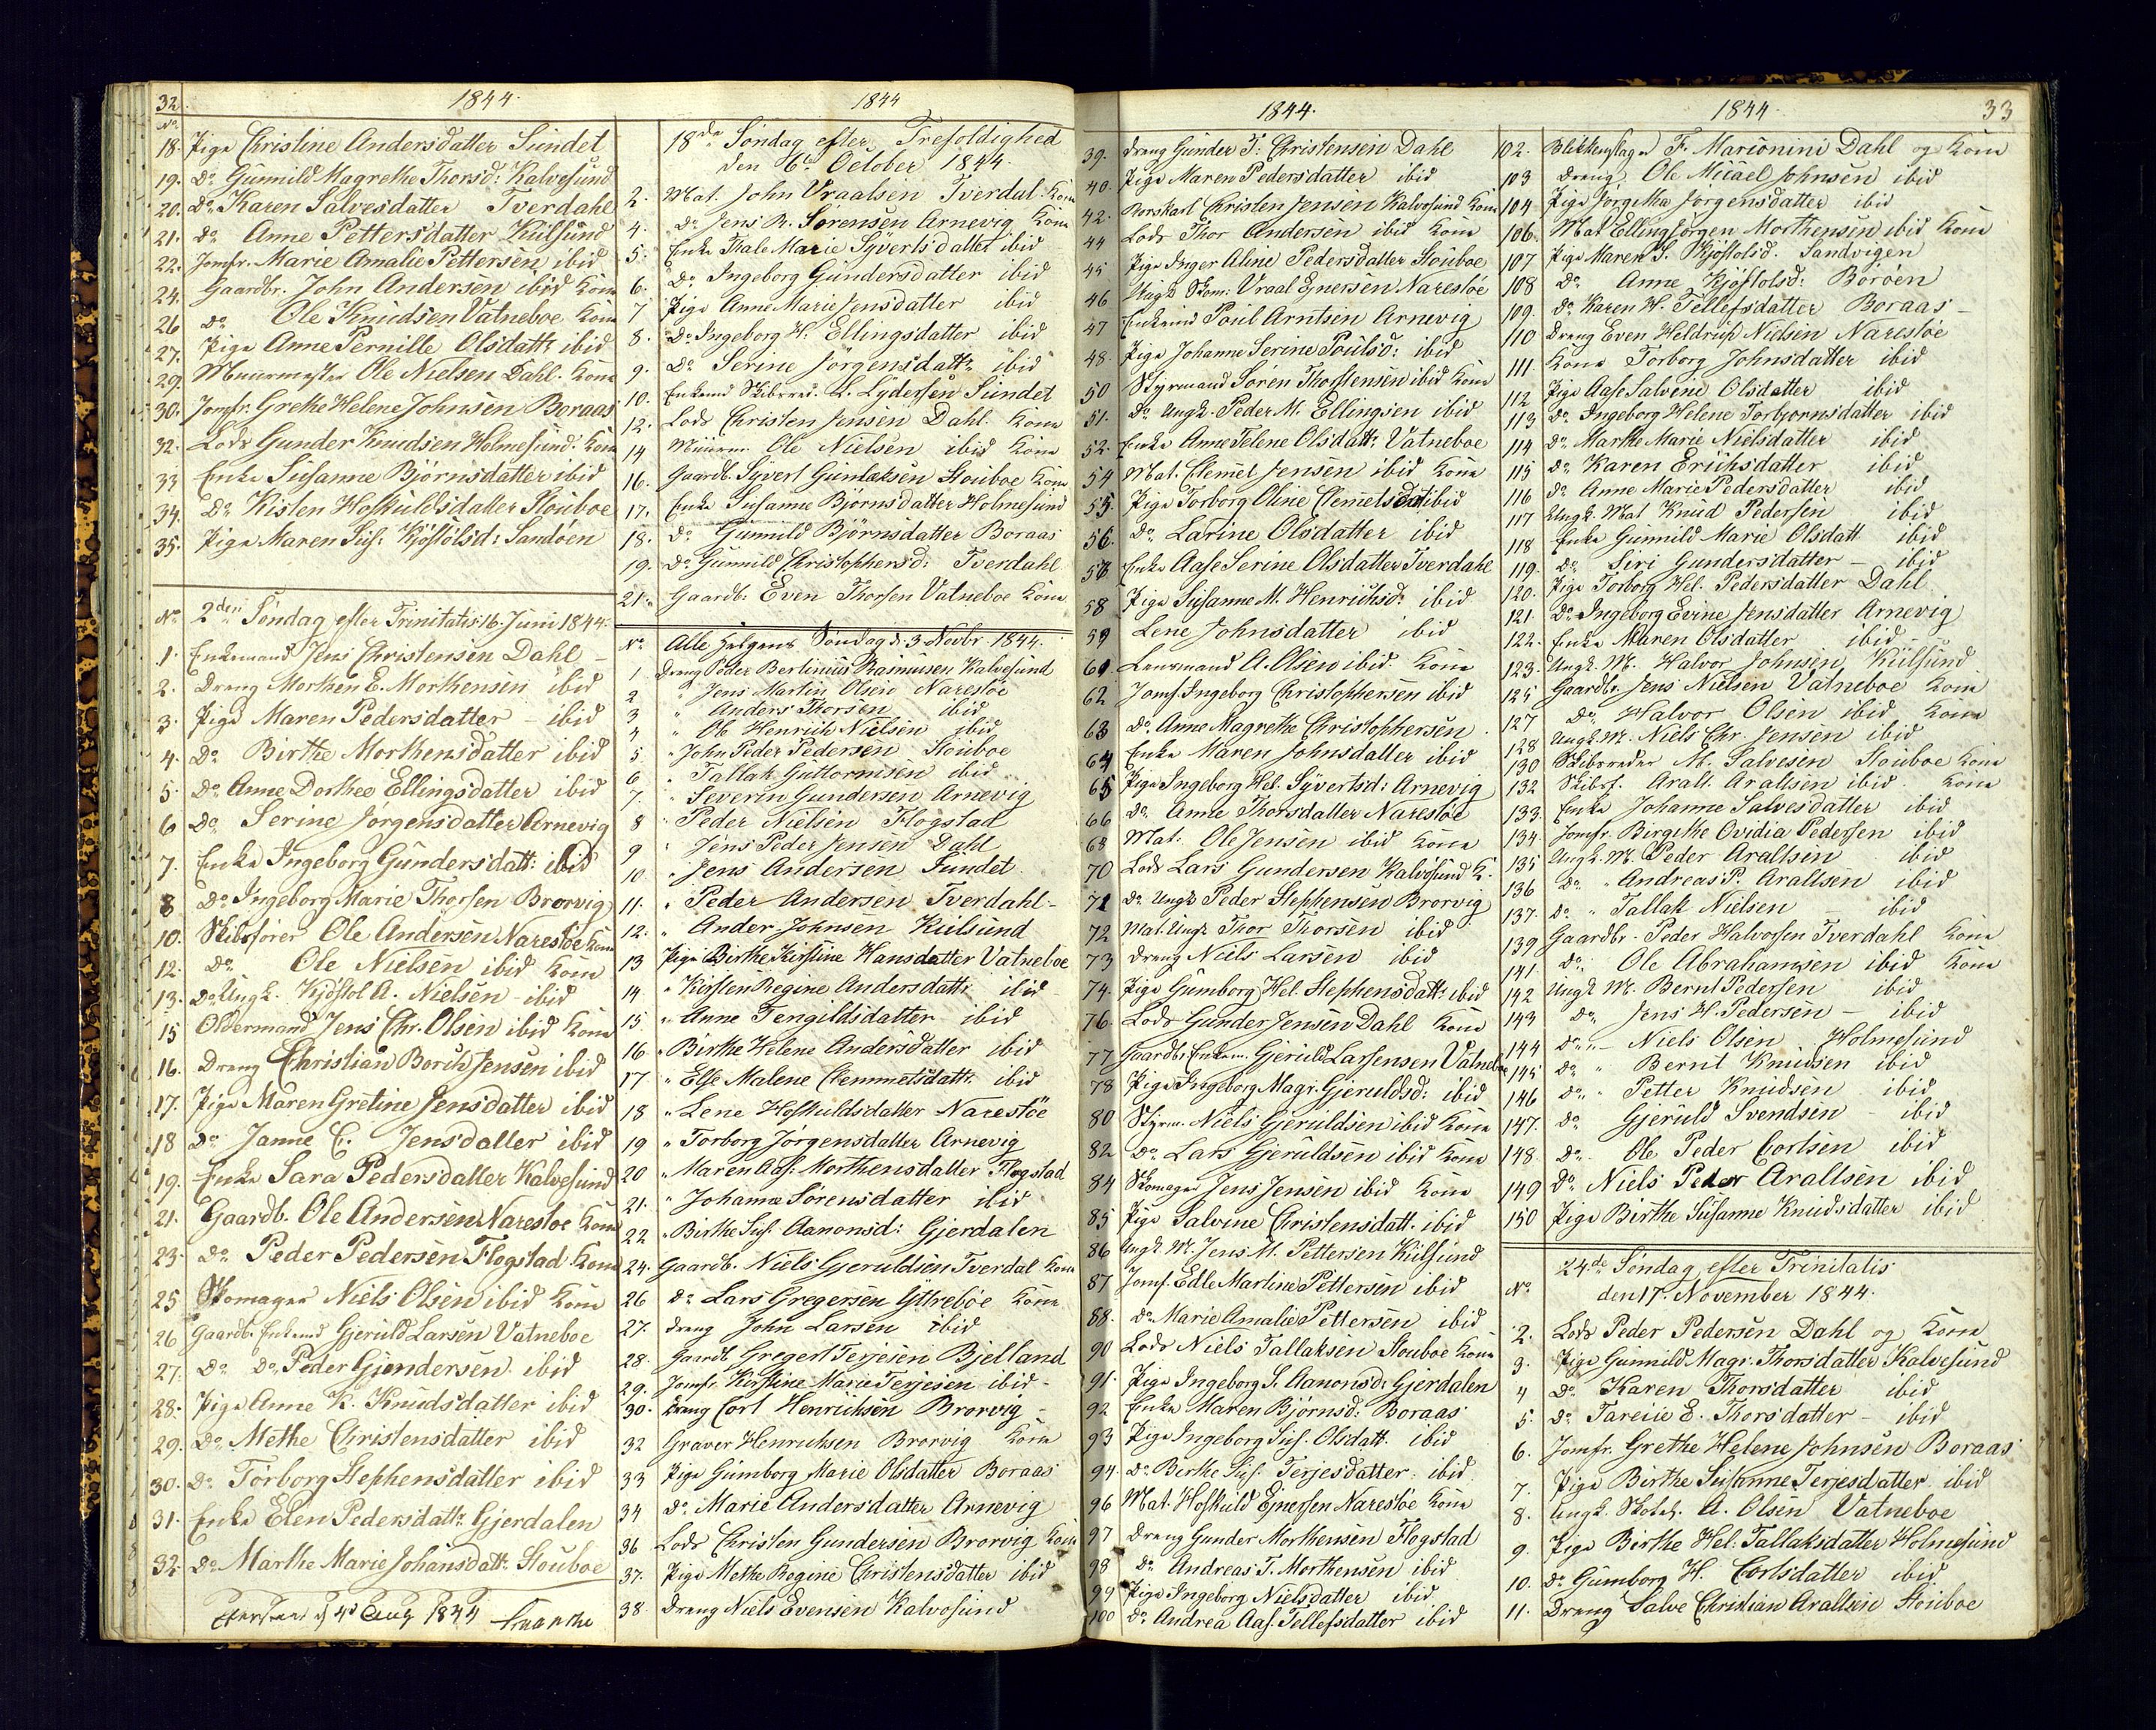 32.
1844.
No
18. Pige Christine Andersdatter Sundet
19. Do Gunnild Magrethe Thorsd: Kalvesund
20. Do Karen Salvesdatter Tverdahl
21. do Anne Pettersdatter Kiilsund
22. Jomfr. Marie Amalie Pettersen ibid
24. Gaardbr. John Andersen ibid Kone
26 do Ole Knudsen Vatneboe Kone
27. Pige Anne Pernille Olsdattr ibid
29. Muurmester Ole Nielsen Dahl. Kone
30. Jomfr. Grethe Helene Johnsen Boraas
32. Lods Gunder Knudsen Holmesund. Kone
33 Enke Susanne Bjørnsdatter ibid
34. Do Kisten Hofkuldsdatter Stouboe
35. Pige Maren Sus: Kjøstolsd: Sandøen
No 2den Søndag efter Trinitatis 16 Juni 1844.
1. Enkemand Jens Christensen Dahl –
2. Dreng Morthen E. Morthensen ibid
3. Pige Maren Pedersdatter – ibid
4. Do Birthe Morthensdatter ibid
5. Do Anne Dorthea Ellingsdatter ibid
6 Do Serine Jørgensdatter Arnevig
7. Enke Ingeborg Gundersdatt: ibid
8 Do Ingeborg Marie Thorsen Brorvig
10. Skibsfører Ole Andersen Narestøe Kone
12. Do Ole Nielsen ibid Kone
13. Do Ungk. Kjøstol A. Nielsen – ibid
15 Oldermand Jens Chr. Olsen ibid Kone
16. Dreng Christian Borch Jensen ibid
17. Pige Maren Gretine Jensdatter ibid
18 Do Janne C. Jensdatter ibid
19. Enke Sara Pedersdatter Kalvesund
21. Gaardb. Ole Andersen Narestoe Kone
23. Do Peder Pedersen Flogstad Kone
25 Skomager Niels Olsen ibid Kone
26 Gaardbr. Enkemd Gjeruld Larsen Vatneboe
27. Do Do Peder Gjundersen ibid
28. Pige Anne K. Knudsdatter ibid
29. Do Methe Christensdatter ibid
30. Do Torborg Stephensdatter ibid
31. Enke Elen Pedersdattr Gjerdalen
32. Do Marthe Marie Johansdatt. Stouboe
d 4d Aug 1844
1844
18de Søndag efter Trefoldighed
den 6te October 1844.
2. Mat. John Vraalsen Tverdal Kone
4. Do Jens R. Sørensen Arnevig Kone
5. Enke Thale Marie Syvertsdatter ibid
6. Do Ingeborg Gundersdatter ibid
7 Pige Anne Marie Jensdatter ibid
8. Do Ingeborg H. Ellingsdatter ibid
9. Do Serine Jörgensdattr ibid
10. Enkemd Skibsred. L. Lydersen Sundet
12. Lods Christen Jensen Dahl. Kone
14 Muurm. Ole Nielsen ibid Kone
16. Gaardb. Syvert Gunlaksen Stouboe Kone
17. Enke Susanne Björnsdatter Holmesund
18. Do Gunnild Björnsdatter Boraas
19. Do Gunnild Christophersd: Tverdahl
21. Gaardb: Even Thorsen Vatneboe Kone
No Alle Helgens Søndag d. 3 Novbr. 1844.
1 Dreng Peder Bertinius Rasmusen Kalvesund
2 " Jens Martin Olsen Narestöe
3 " Anders Thorsen ibid
4 " Ole Henrich Nielsen ibid
5 " John Peder Pedersen Stouboe
6 " Tallak Guttormsen ibid
7. " Severin Gundersen Arnevig
8 " Peder Nielsen Flogstad
9 " Jens Peder Jensen Dahl
10. " Jens Andersen Sundet
11. " Peder Andersen Tverdahl –
12. " Ander Johnsen Kiilsund
13 Pige Birthe Kirstine Hansdatter Vatneboe
14 " Kirsten Regine Andersdattr. ibid
15 " Anne Terigildsdatter ibid
16 " Birthe Helene Andersdatter ibid
17 " Else Malene Clemmetsdattr. ibid
18 " Lene Hofkuldsdatter Narestöe
19 " Torborg Jørgensdatter Arnevig
20 " Maren Aas: Morthensdatter Flogstad
21. " Johanne Sörensdatter ibid
22 " Birthe Sus. Aanonsd: Gjerdalen
24. Gaardb. Niels Gjeruldsen Tverdal Kone
26 do Lars Gregersen Yttrebøe Kone
27. dreng John Larsen ibid
28. Gaardb Gregert Terjesen Bjelland
29. Jomfr. Kirstine Marie Terjesen ibid –
30. Dreng Cort Henrichsen Brorvig –
32 Graver Henrichsen Brorvig Kone
33 Pige Gumborg Marie Olsdatter Boraas
34 do Marie Andersdatter Arnevig
36 Lods Christen Gundersen Brorvig Kone
37. Pige Methe Regine Christensdatter ibid
38. Dreng Niels Evensen Kalvosund
1844.
39. dreng Gunder T. Christensen Dahl
40. Pige Maren Pedersdatter ibid
42. Rorskarl Christen Jensen Kalvosund Kone
44 Lods Thor Andersen ibid Kone
45 Pige Inger Aline Pedersdatter Stouboe
46 Ungk Skom: Vraal Ejnersen Narestøe
47 Enkemd Poul Arntsen Arnevig
48. Pige Johanne Serine Poulsd: ibid
50 Styrmand Søren Thorstensen ibid Kone
51. do ungk. Peder M. Ellingsen ibid
52. Enke Anne Telene Olsdattr. Vatneboe
54 Mat. Clemet Jensen ibid Kone
55. Pige Torborg Oline Clemetsdat ibid
56. Do Larine Olsdatter ibid
57 Enke Aase Serine Olsdatter Tverdahl
58 Pige Susanne M. Henrichsd: ibid
59 Lene Johnsdatter ibid
60. Lensmand A. Olsen ibid. Kone
62 Jomf. Ingeborg Christophersen ibid
63 do Anne Magrethe Christophersen
64 Enke Maren Johnsdatter ibid
65 Pige Ingeborg Hel. Syvertsd: Arnevig
66 do Anne Thorsdatter Narestöe
68 Mat: Ole Jensen ibid Kone
70 Lods Lars Gundersen Kalvösund K.
71 do ungk Peder Stephensen Brorvig
72 Mat. Ungk Thor Thorsen ibid
73 Dreng Niels Larsen ibid
74. Pige Gumborg Hel. Stephensdatt: ibid
76. Lods Gunder Jensen Dahl Kone
77 Gaardbr. Enkem. Gjeruld Larsensen Vatneboe
78 Pige Ingeborg Magr. Gjeruldsd: ibid
80 Styrm. Niels Gjeruldsen ibid Kone
82 Do Lars Gjeruldsen ibid Kone
84 Skomager Jens Jensen ibid Kone
85 Pige Salvine Christensdatt. ibid
86 Ungk. M. Jens M. Pettersen Kiilsund
87 Jomf. Edle Martine Pettersen ibid
88. do Marie Amalie Pettersen ibid
90 Lods Niels Tallaksen Stouboe Kone
91. Pige Ingeborg S. Aanonsd: Gjerdalen
92 Enke Maren Bjørnsd: Boraas
93 Pige Ingeborg Sus. Olsdatt. ibid
94. Do Birthe Sus. Terjesdatter. ibid
96 Mat. Hofkuld Ejnersen Narestøe Kone
97 Dreng Gunder Morthensen Flogstad
98 do Andreas T. Morthensen ibid
99 Pige Ingeborg Nielsdatter ibid
100 Do Andrea Aas. Tellefsdatter ibid
1844.
33
102. Blikkenslager F. Marionini Dahl og Kone
103 Dreng Ole Micael Johnsen ibid
104 Pige Jørgithe Jørgensdatter ibid
106. Mat Elling Jörgen Morthensen ibid Kone
107 Pige Maren S. Kjøstolsd. Sandvigen
108 Do Anne Kjøstolsd: Borøen
109. do Karen H. Tellefsdatter Boraas –
110 Dreng Even Heldrich Nielsen Narestöe
111. Kone Torborg Johnsdatter ibid
112 Pige Aase Salvine Olsdatter ibid
113 Do Ingeborg Helene Torbjornsdatter ibid
114 do Marthe Marie Nielsdatter ibid
115 do Karen Erichsdatter ibid
116 do Anne Marie Pedersdatter ibid
117 Ungk. Mat Knud Pedersen ibid
118 Enke Gunnild Marie Olsdatt ibid
119. do Siri Gundersdatter – ibid
120. Pige Torborg Hel. Pedersdatter Dahl
121 Do Ingeborg Evine Jensdatter Arnevig
122. Enke Maren Olsdatter ibid
123. Ungk. M. Halvor Johnsen Kiilsund
125 Gaardbr. Jens Nielsen Vatneboe Kone
127 do Halvor Olsen ibid Kone
128 Ungk M. Niels Chr. Jensen ibid
130 Skibsreder M. Salvesen Stouboe Kone
132 Skibsf. Aralt Araltsen ibid. Kone
133. Enke Johanne Salvesdatter ibid
134. Jomfr. Birgithe Ovidia Pedersen ibid
135 Ungk. M. Peder Araltsen ibid
136 do " Andreas P. Araltsen ibid
137. do " Tallak Nielsen – ibid
139 Gaardbr. Peder Halvorsen Tverdahl Kone
141. do Ole Abrahamsen ibid Kone
142 Ungk M. Bernt Pedersen ibid
143 do Jens H. Pedersen – ibid
144 do " – Niels Olsen Holmesund
145 do " Bernt Knudsen ibid
146 do " Petter Knudsen ibid
147. do Gjeruld Svendsen – ibid
148. do Ole Peder Cortsen ibid
149 Do Niels Peder Araltsen ibid
150 Pige Birthe Susanne Knudsdatter ibid
24de Søndag efter Trinitatis
No den 17. November 1844.
2. Lods Peder Pedersen Dahl og Kone
3. Pige Gunnild Magr. Thorsdatter Kalvesund
4 Do Karen Thorsdatter ibid
5. Do Tareiie E. Thorsdatter – ibid
6. Jomfr. Grethe Helene Johnsen Boraas
7. Pige Birthe Susanne Terjesdatter ibid
8. Ungk. A. Olsen Vatneboe
9. Pige Birthe Hel. Tallaksdatter Holmesund
10. Do Gumborg H. Cortsdatter ibid
11. Dreng Salve Christian Araltsen Stouboe